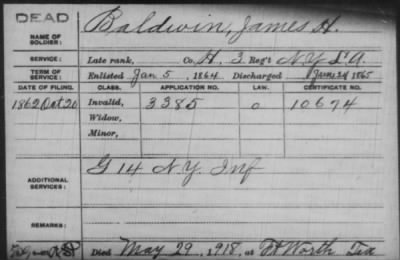 DEAD
NAME OF SOLDIER: Baldwin, James H.
SERVICE: Late rank, Co. H, 3 Reg't N.Y. L. A.
TERM OF SERVICE: Enlisted Jan 5, 1864 Discharged June 24 1865
DATE OF FILING. CLASS. APPLICATION NO. LAW. CERTIFICATE NO.
1862 Oct 20 Invalid, 3385 o 10674
Widow,
Minor,
ADDITIONAL SERVICES: G 14 N.Y. Inf
REMARKS:
Died May 29, 1918, at Ft Worth Tex